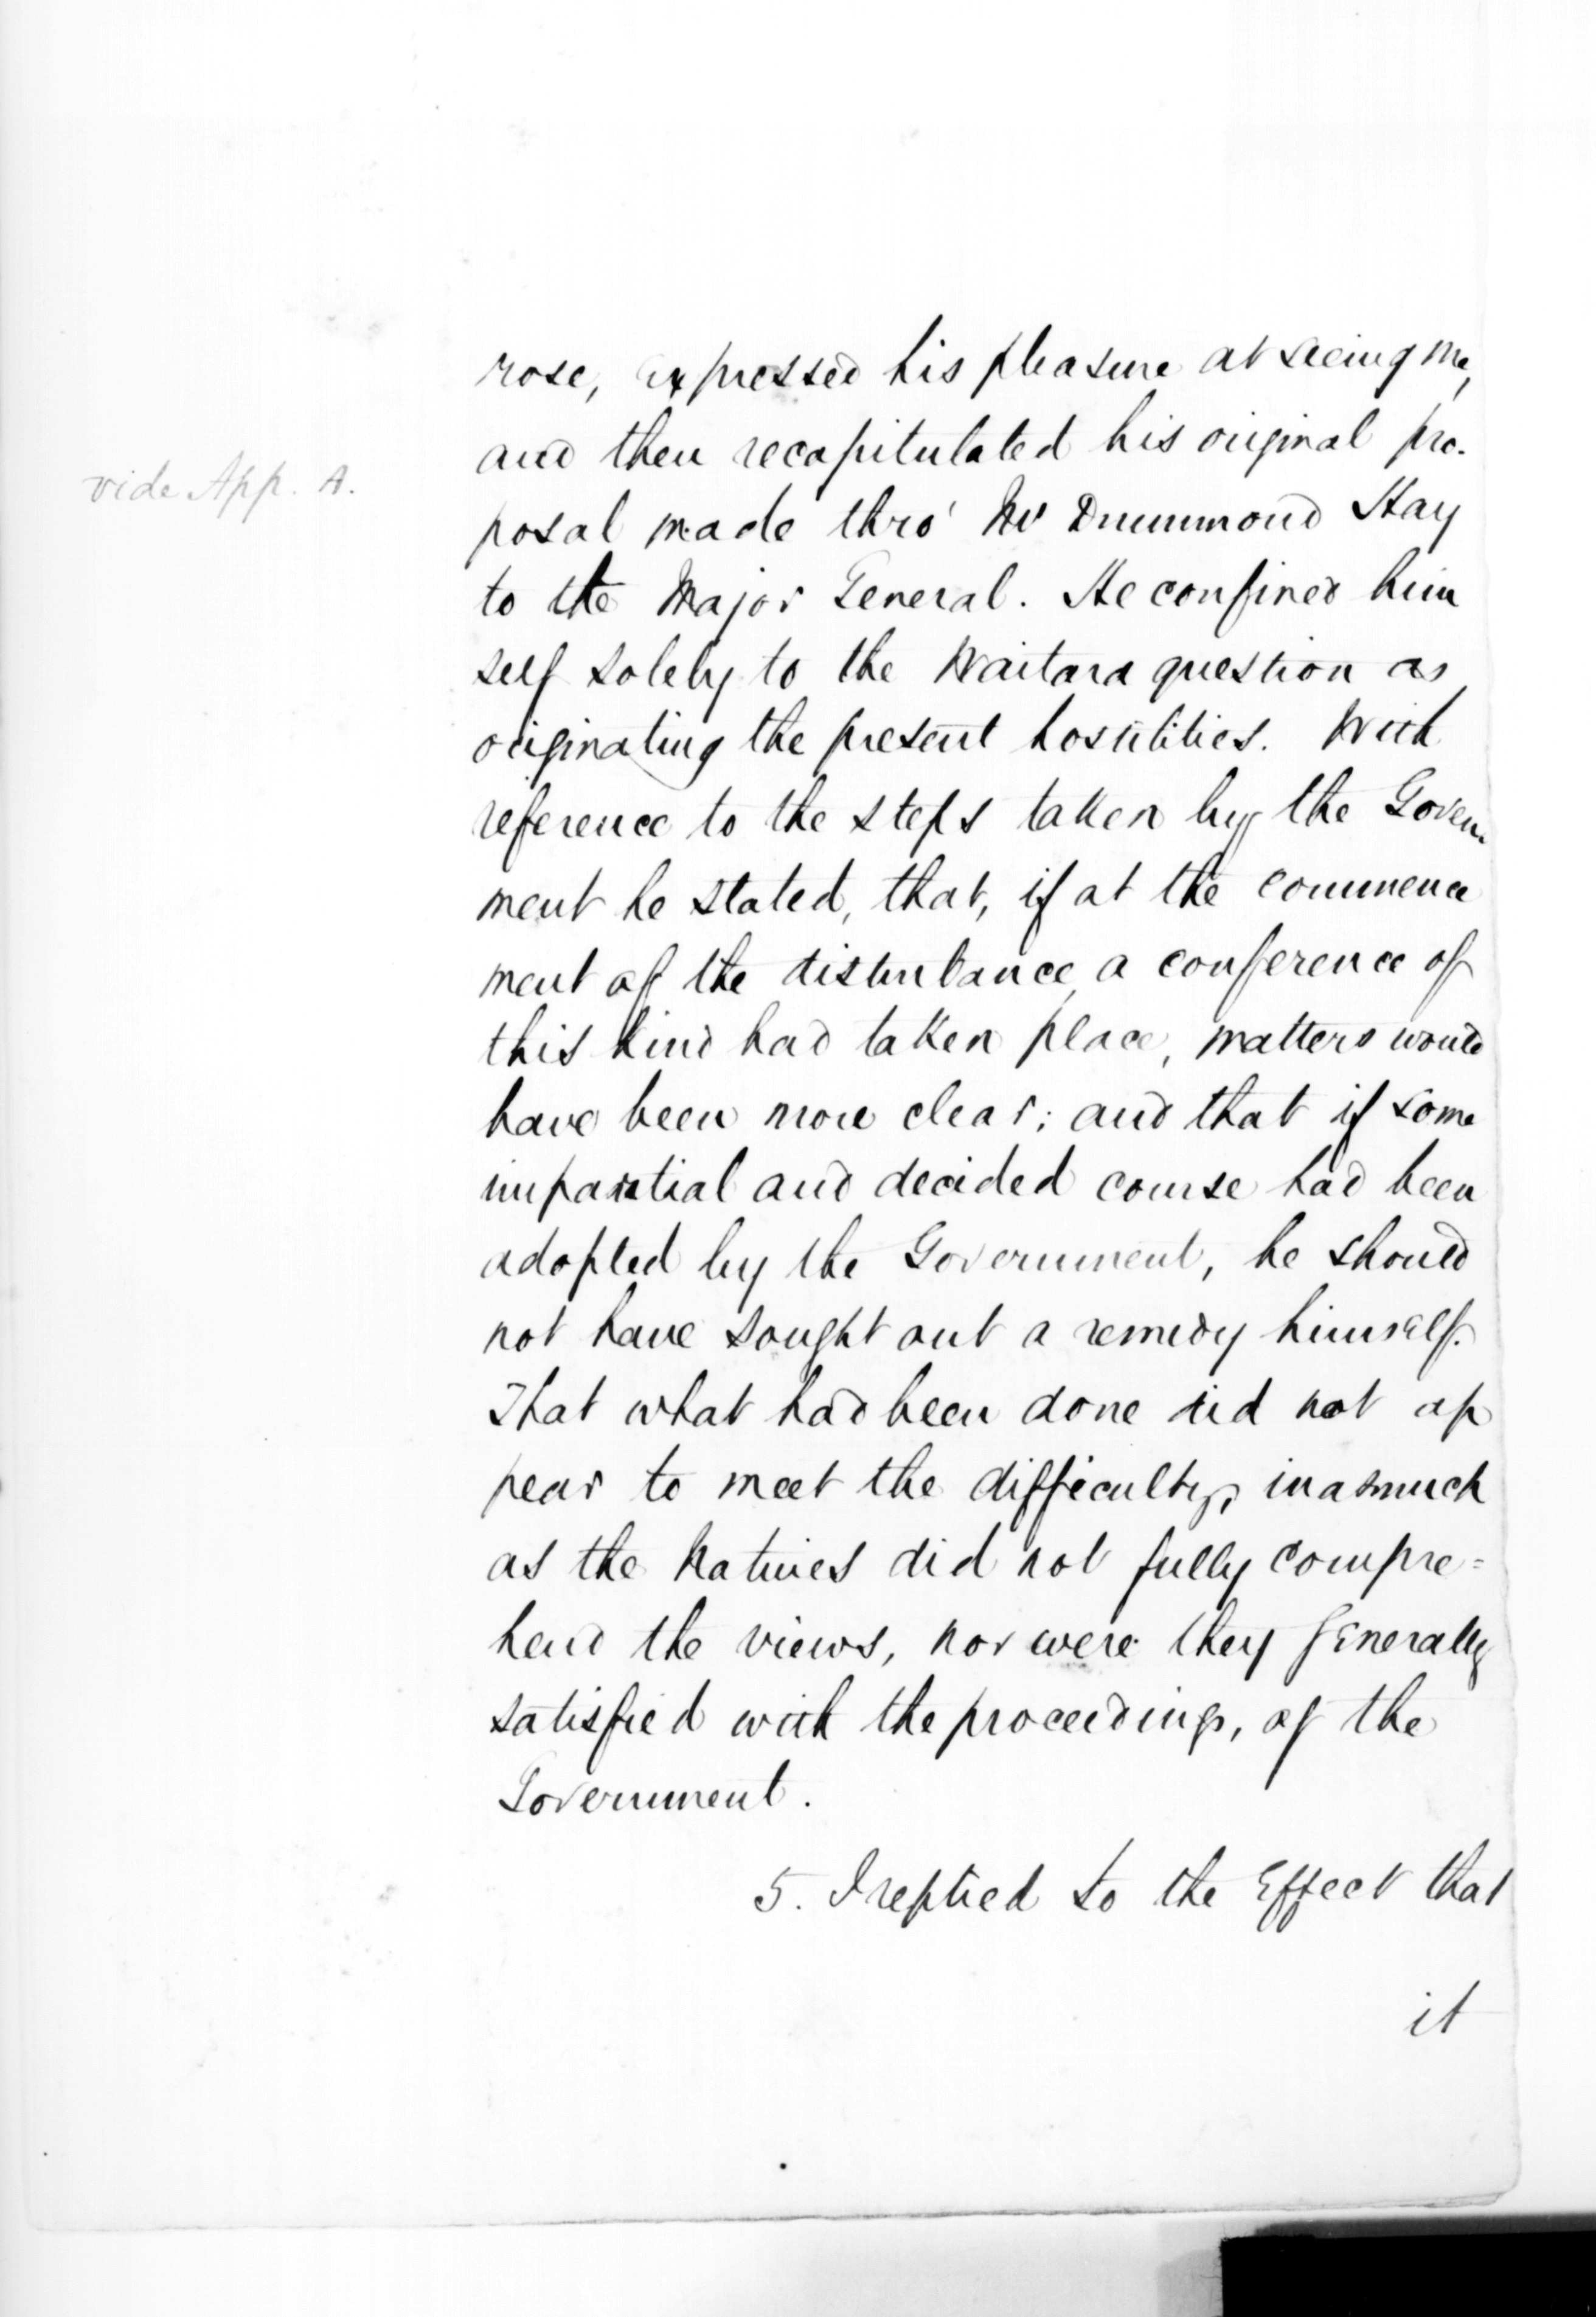 rose, expressed his pleasure at seeing me,
and then recapitulated his original pro-
vide App. A.
posal made thro' Mr Drummond Hay
to the Major General. He confined him
self solely to the Waitara question as
originating the present hostilities. With
reference to the steps taken by the Govern
ment he stated, that, if at the commence
ment of the disturbance, a conference of
this kind had taken place, matters would
have been more clear; and that if some
impartial and decided course had been
adopted by the Government, he should
not have sought out a remedy himself.
That what had been done did not ap
pear to meet the difficulty, inasmuch
as the Natives did not fully compre=
hend the views, nor were they generally
satisfied with the proceedings, of the
Government.
5. I replied to the Effect that
it